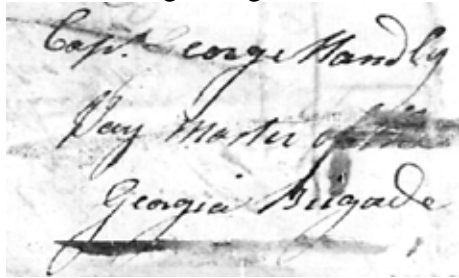 Capt. George Handly
Pay Master of the
Georgia Brigade